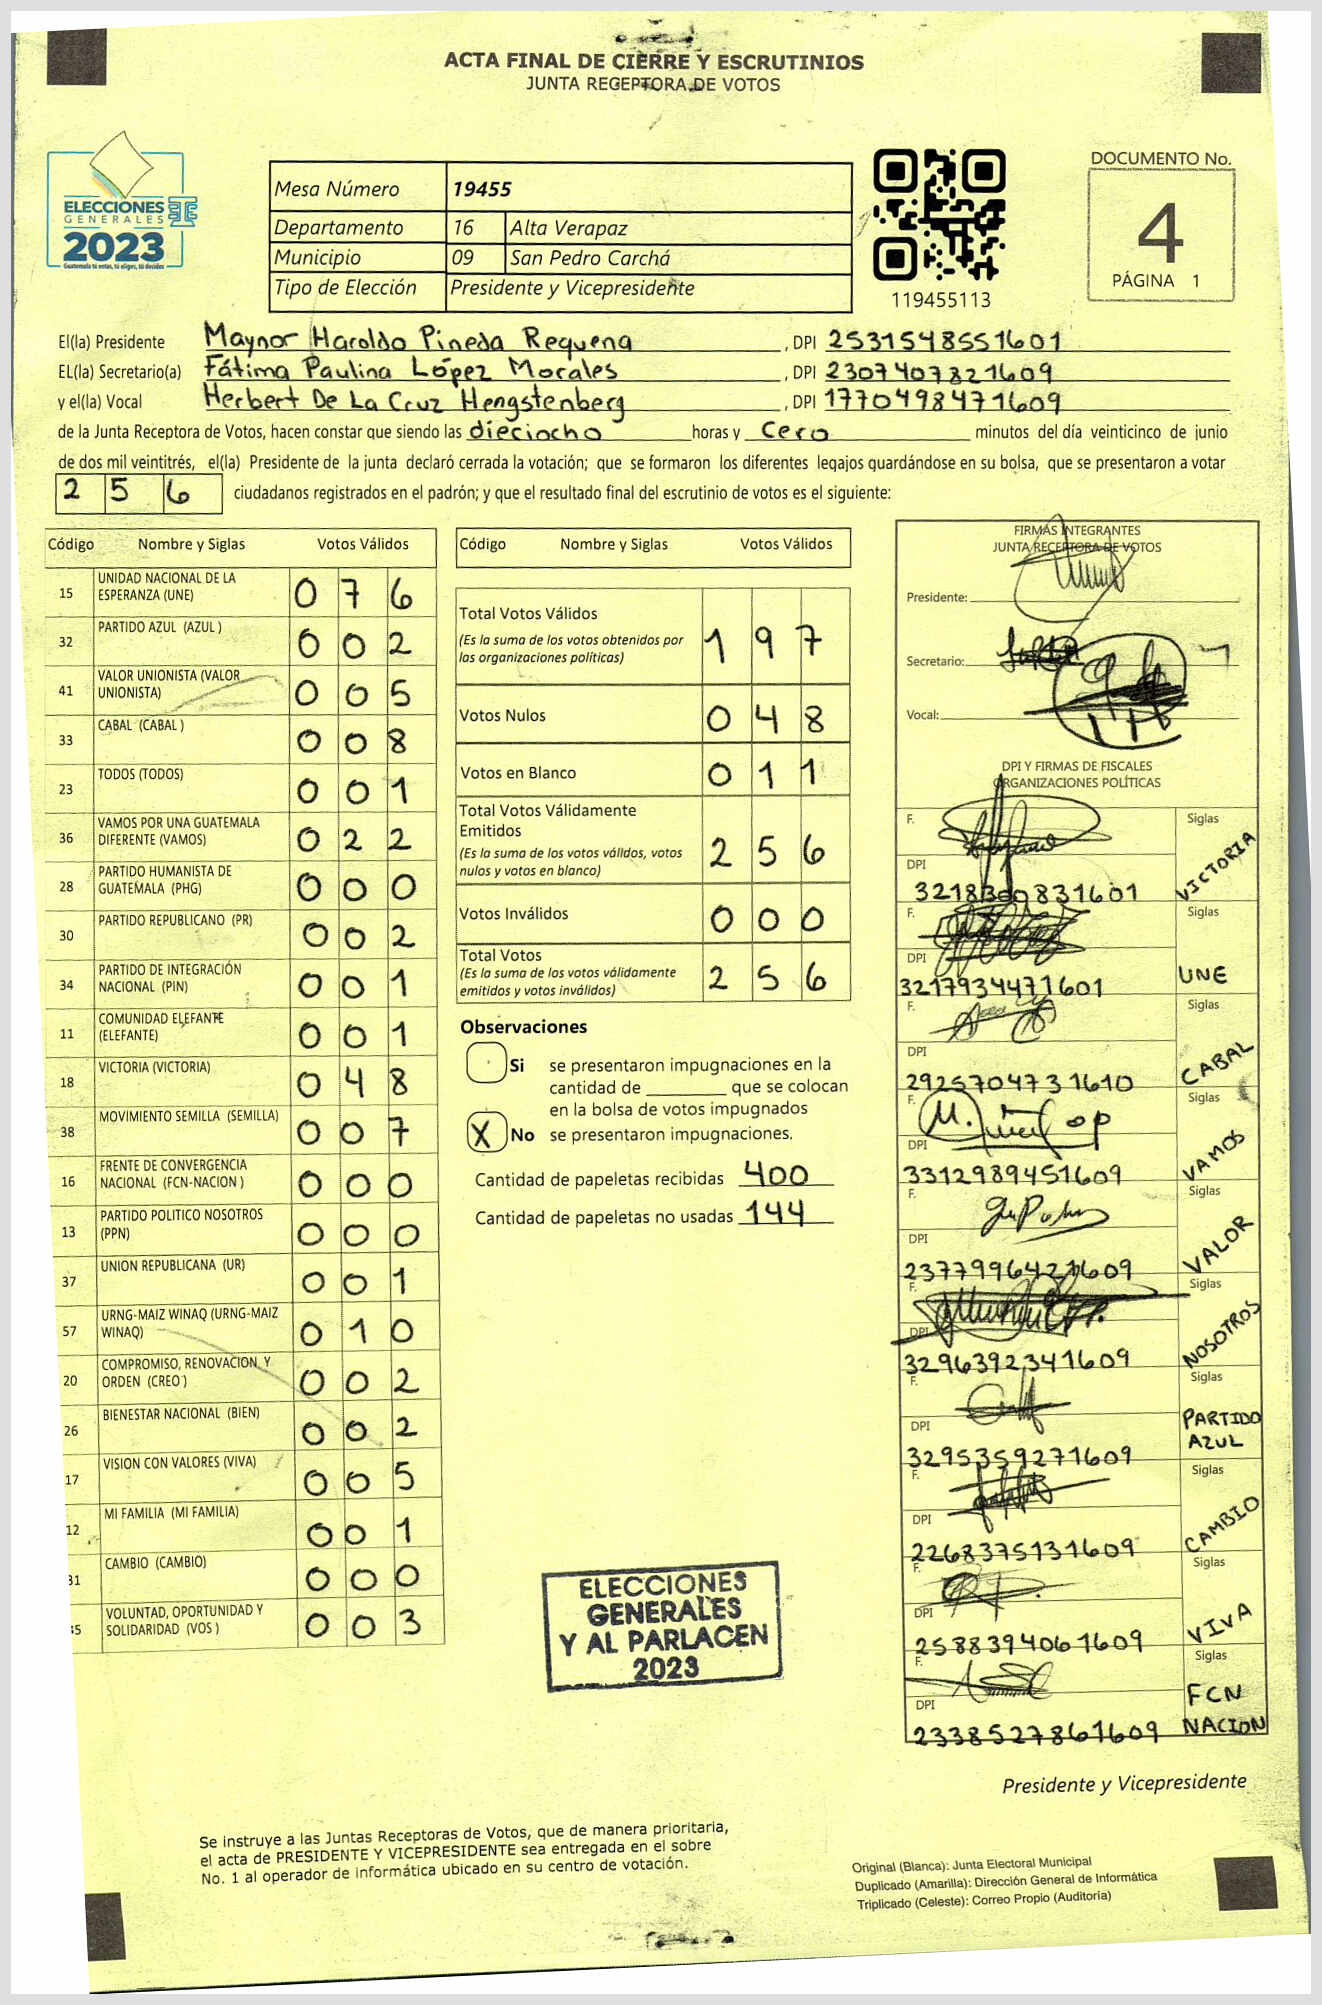 ACTA FINAL DE CIERRE Y ESCRUTINIOS
JUNTA RECEPTORA DE VOTOS
ELECCIONES
GENERALES
2023
Guatemala tú votas, tú eliges, tú decides
Mesa Número 19455
Departamento 16 Alta Verapaz
Municipio 09 San Pedro Carchá
Tipo de Elección Presidente y Vicepresidente
119455113
DOCUMENTO No.
4
PÁGINA 1
El(la) Presidente Maynor Haroldo Pineda Requena, DPI 2531548551601
EL(la) Secretario(a) Fátima Paulina López Morales, DPI 2307407821609
y el(la) Vocal Herbert De La Cruz Hengstenberg, DPI 1770498471609
de la Junta Receptora de Votos, hacen constar que siendo las dieciocho horas y Cero minutos del día veinticinco de junio
de dos mil veintitrés, el(la) Presidente de la junta declaró cerrada la votación; que se formaron los diferentes legajos guardándose en su bolsa, que se presentaron a votar
256 ciudadanos registrados en el padrón; y que el resultado final del escrutinio de votos es el siguiente:
Código Nombre y Siglas Votos Válidos
15 UNIDAD NACIONAL DE LA ESPERANZA (UNE) 076
32 PARTIDO AZUL (AZUL ) 002
41 VALOR UNIONISTA (VALOR UNIONISTA) 005
33 CABAL (CABAL ) 008
23 TODOS (TODOS) 001
36 VAMOS POR UNA GUATEMALA DIFERENTE (VAMOS) 022
28 PARTIDO HUMANISTA DE GUATEMALA (PHG) 000
30 PARTIDO REPUBLICANO (PR) 002
34 PARTIDO DE INTEGRACIÓN NACIONAL (PIN) 001
11 COMUNIDAD ELEFANTE (ELEFANTE) 001
18 VICTORIA (VICTORIA) 048
38 MOVIMIENTO SEMILLA (SEMILLA) 007
16 FRENTE DE CONVERGENCIA NACIONAL (FCN-NACION ) 000
13 PARTIDO POLITICO NOSOTROS (PPN) 000
37 UNION REPUBLICANA (UR) 001
57 URNG-MAIZ WINAQ (URNG-MAIZ WINAQ) 010
20 COMPROMISO, RENOVACION Y ORDEN (CREO ) 002
26 BIENESTAR NACIONAL (BIEN) 002
17 VISION CON VALORES (VIVA) 005
12 MI FAMILIA (MI FAMILIA) 001
31 CAMBIO (CAMBIO) 000
VOLUNTAD, OPORTUNIDAD Y SOLIDARIDAD (VOS ) 003
Código Nombre y Siglas Votos Válidos
Total Votos Válidos 197
(Es la suma de los votos obtenidos por
las organizaciones políticas)
Votos Nulos 048
Votos en Blanco 011
Total Votos Válidamente
Emitidos 256
(Es la suma de los votos válidos, votos
nulos y votos en blanco)
Votos Inválidos 000
Total Votos 256
(Es la suma de los votos válidamente
emitidos y votos inválidos)
Observaciones
Si se presentaron impugnaciones en la
cantidad de ________ que se colocan
en la bolsa de votos impugnados
X No se presentaron impugnaciones.
Cantidad de papeletas recibidas 400
Cantidad de papeletas no usadas 144
ELECCIONES
GENERALES
Y AL PARLACEN
2023
FIRMAS INTEGRANTES
JUNTA RECEPTORA DE VOTOS
Presidente:
Secretario:
Vocal:
DPI Y FIRMAS DE FISCALES
ORGANIZACIONES POLÍTICAS
F. Siglas
DPI 3218300831601 VICTORIA
F. Siglas
DPI 3217934471601 UNE
F. Siglas
DPI 2925704731610 CABAL
F. Siglas
DPI 3312989451609 VAMOS
F. Siglas
DPI 2377996421609 VALOR
F. Siglas
DPI 3296392341609 NOSOTROS
F. Siglas
DPI 3295359271609 PARTIDO AZUL
F. Siglas
DPI 2268375131609 CAMBIO
F. Siglas
DPI 2588394061609 VIVA
F. Siglas
DPI 2338527861609 FCN NACION
Presidente y Vicepresidente
Se instruye a las Juntas Receptoras de Votos, que de manera prioritaria,
el acta de PRESIDENTE Y VICEPRESIDENTE sea entregada en el sobre
No. 1 al operador de informática ubicado en su centro de votación.
Original (Blanca): Junta Electoral Municipal
Duplicado (Amarilla): Dirección General de Informática
Triplicado (Celeste): Correo Propio (Auditoria)